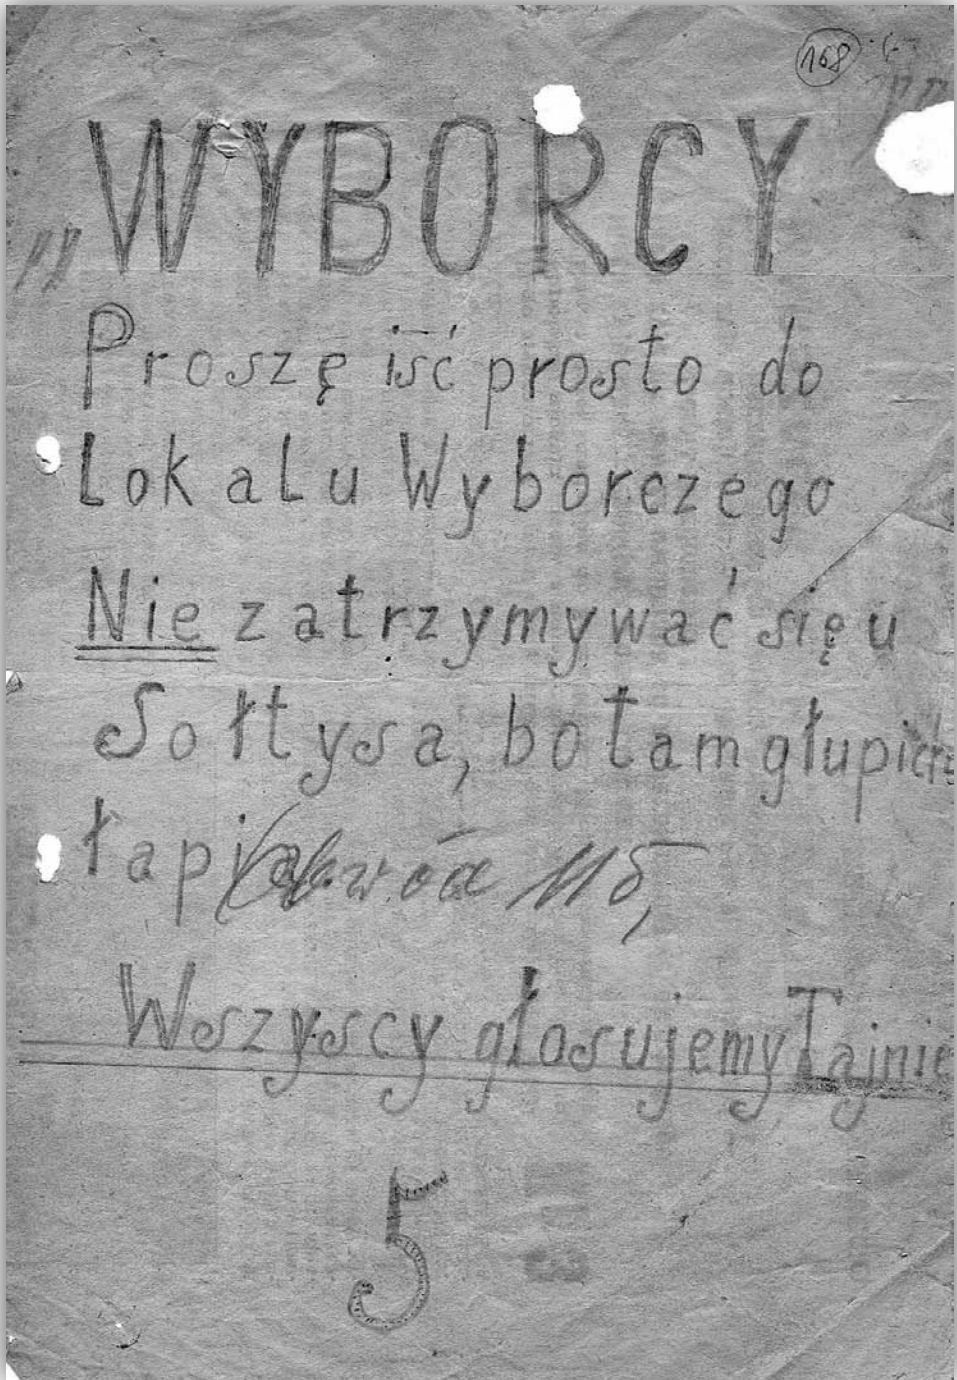 168
„WYBORCY
Proszę iść prosto do
Lokalu Wyborczego
Nie zatrzymywać się u
Sołtysa, bo tam głupich
łapią
Wszyscy głosujemy Tajnie
5